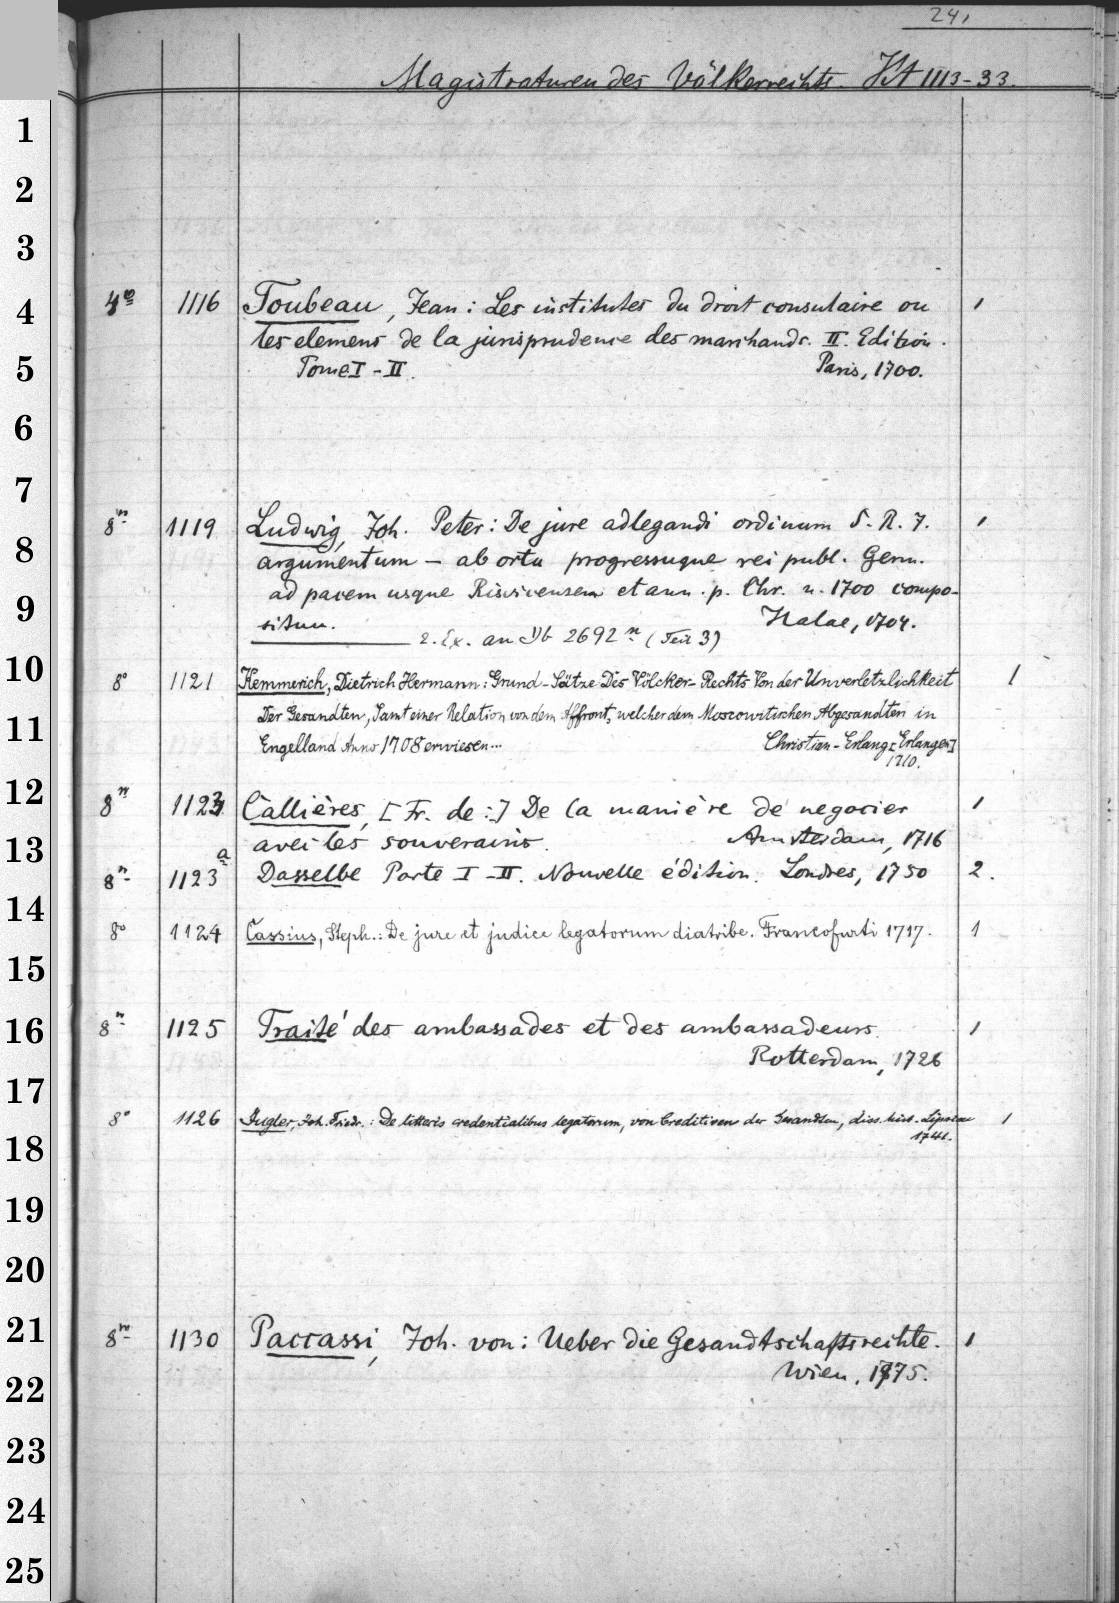 241
Magistraturen des Völkerrechts. Kt 1113-33.
1
2
3
4
5
6
7
8
9
10
11
12
13
14
15
16
17
18
19
20
21
22
23
24
25
4° 1116 Toubeau, Jean: Les institutes du droit consulaire ou 1
les elemens de la jurisprudence des marchands. II. Edition.
Tome I-II. Paris, 1700.
8° 1119 Ludwig, Joh. Peter: De jure adlegandi ordinum S. R. J. 1
argumentum – ab ortu progressuque rei publ. Germ.
ad pacem usque Risvicensem et ann. p. Chr. n. 1700 compo-
situm. Halae, 1704.
2. Ex. an 2692 n (Teil 3)
8° 1121 Kemmerich, Dietrich Hermann: Grund-Sätze Des Völcker-Rechts Von der Unverletzlichkeit 1
Der Gesandten, Samt einer Relation von dem Affront, welcher dem Moscowitischen Abgesandten in
Engelland Anno 1708 erwiesen... Christian-Erlang [Erlangen]
1710.
8° 1123 Callières, [Fr. de:] De la manière de negocier 1
avec les souverains. Amsterdam, 1716
8° 1123 a Dasselbe Parte I-II. Nouvelle édition. Londres, 1750 2.
8° 1124 Cassius, Steph.: De jure et judice legatorum diatribe. Francofurti 1717. 1
8° 1125 Traité des ambassades et des ambassadeurs. 1
Rotterdam, 1726
8° 1126 Jugler, Joh. Friedr.: De litteris credentialibus legatorum, von Creditiven der Gesandten, diss. hist. Lipsiae 1
1741.
8° 1130 Paccassi, Joh. von: Ueber die Gesandtschaftsrechte. 1
Wien, 1775.